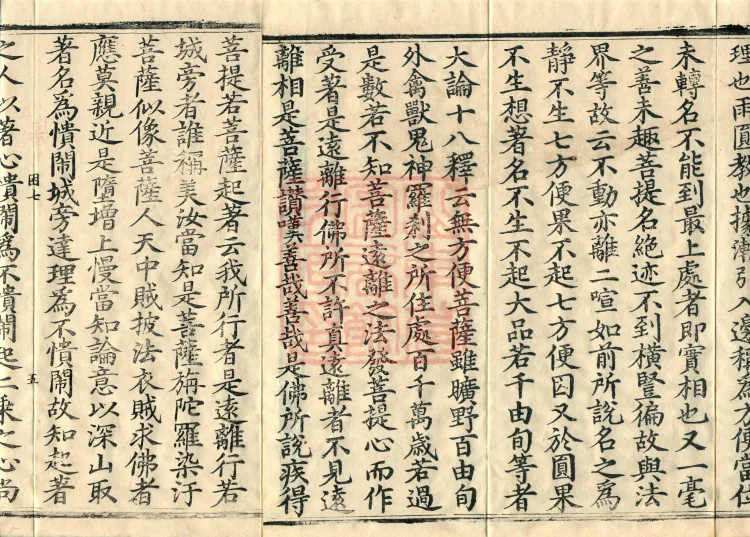 理也雨圓教也據漸引入遠稱為方便當位
未轉名不能到最上處者即實相也又一毫
之善未趣菩提名絶迹不到橫豎徧故與法
界等故云不動亦離二喧如前所說名之為
靜不生七方便果不起七方便因又於圓果
不生想著名不生不起大品若千由旬等者
大論十八釋云無方便菩薩雖曠野百由旬
外禽獸鬼神羅刹之所住處百千萬歲若過
是數若不知菩薩遠離之法發菩提心而作
受著是遠離行佛所不許真遠離者不見遠
離相是菩薩讚嘆善哉善哉是佛所說疾得
菩提若菩薩起著云我所行者是遠離行若
城旁者誰稱美汝當知是菩薩旃陀羅染汙
菩薩似像菩薩人天中賊披法衣賊求佛者
應莫親近是墮增上慢當知論意以深山取
著名為憒閙城旁達理為不憒閙故知起著
困七 五
之人以著心憒閙為不憒閙起二乘之心尚